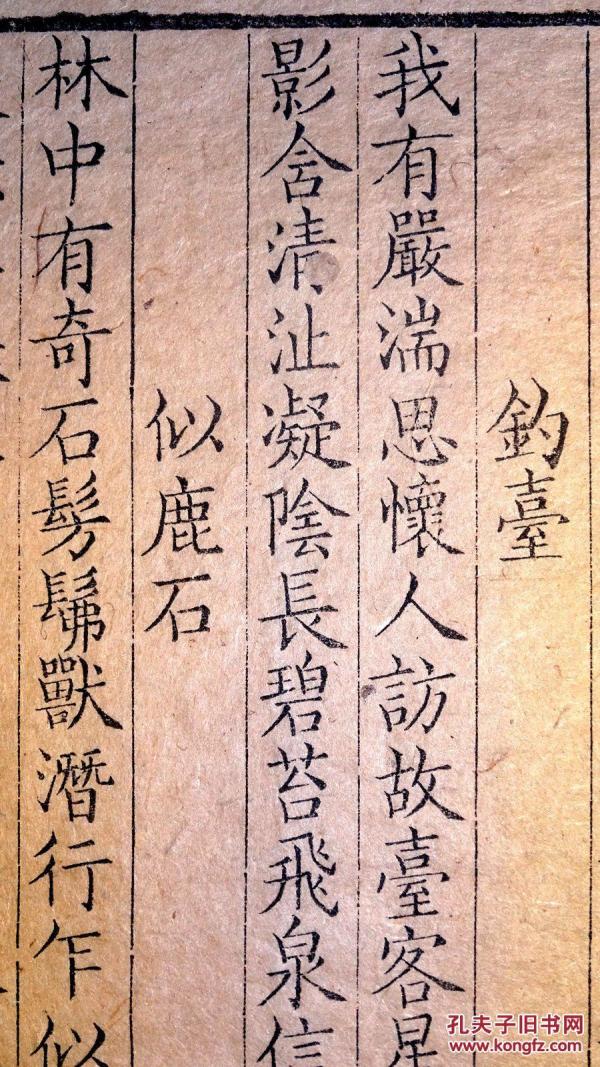 釣臺
我有嚴湍思懷人訪故臺客星
影含清沚凝陰長碧苔飛泉信
似鹿石
林中有奇石髣髴獸潛行乍似
孔夫子旧书网
www.kongfz.com